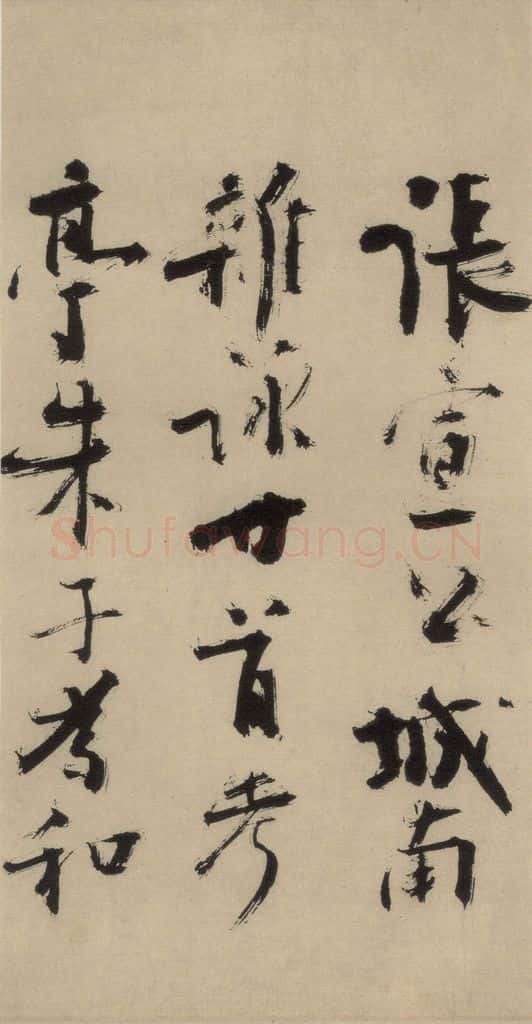 張宣公城南
雜詠廿首考
亭朱子為和
Shufawang.CN